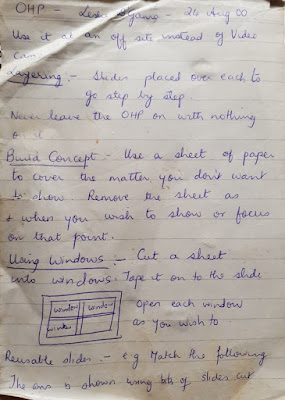 OHP - 24 Aug 00
Use it at an off site instead of Video
Cam
Layering :- Slides placed over each to
go step by step.
Never leave the OHP on with nothing
on it
Build Concept - Use a sheet of paper
to cover the matter you don't want
to show. Remove the sheet as
& when you wish to show or focus
on that point.
Using Windows - Cut a sheet
into windows. Tape it on to the slide
window window
window
open each window
as you wish to
Reusable slides :- e.g Match the following
The ans is shown using bits of slides cut